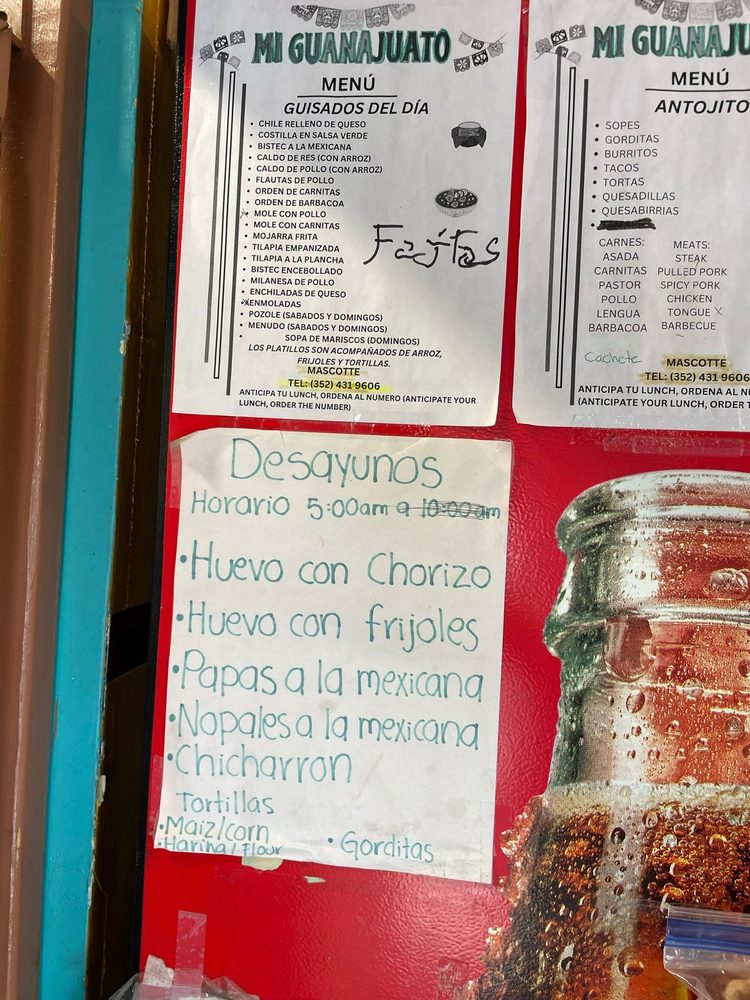 MI GUANAJUATO
MENÚ
GUISADOS DEL DÍA
• CHILE RELLENO DE QUESO
• COSTILLA EN SALSA VERDE
• BISTEC A LA MEXICANA
• CALDO DE RES (CON ARROZ)
• CALDO DE POLLO (CON ARROZ)
• FLAUTAS DE POLLO
• ORDEN DE CARNITAS
• ORDEN DE BARBACOA
• MOLE CON POLLO
• MOLE CON CARNITAS
• MOJARRA FRITA
• TILAPIA EMPANIZADA
• TILAPIA A LA PLANCHA
• BISTEC ENCEBOLLADO
• MILANESA DE POLLO
• ENCHILADAS DE QUESO
• ENMOLADAS
• POZOLE (SABADOS Y DOMINGOS)
• MENUDO (SABADOS Y DOMINGOS)
• SOPA DE MARISCOS (DOMINGOS)
Fajitas
LOS PLATILLOS SON ACOMPAÑADOS DE ARROZ,
FRIJOLES Y TORTILLAS.
MASCOTTE
TEL: (352) 431 9606
ANTICIPA TU LUNCH, ORDENA AL NUMERO (ANTICIPATE YOUR
LUNCH, ORDER THE NUMBER)
MI GUANAJU
MENÚ
ANTOJITO
• SOPES
• GORDITAS
• BURRITOS
• TACOS
• TORTAS
• QUESADILLAS
• QUESABIRRIAS
CARNES: MEATS:
ASADA STEAK
CARNITAS PULLED PORK
PASTOR SPICY PORK
POLLO CHICKEN
LENGUA TONGUE X
BARBACOA BARBECUE
Cachete
MASCOTTE
TEL: (352) 431 960
ANTICIPA TU LUNCH, ORDENA AL N
(ANTICIPATE YOUR LUNCH, ORDER T
Desayunos
Horario 5:00am a 10:00am
• Huevo con Chorizo
• Huevo con frijoles
• Papas a la mexicana
• Nopales a la mexicana
• Chicharron
Tortillas
• Maiz/corn
• Harina/Flour
• Gorditas